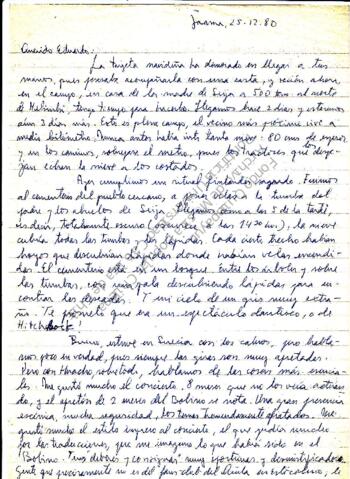 Jaama, 25.12.80
Querido Eduardo:
La tarjeta navideña ha demorado en llegar a tus
manos, pues pensaba acompañarla con una carta, y recién ahora
en el campo, en casa de los padres de Seija a 500 kms. al norte
de Helsinki, tengo tiempo para hacerlo. Llegamos hace 2 días y estaremos
aún 3 días más. Esto es pleno campo, el vecino más próximo vive a
medio kilómetro. Nunca antes había visto tanta nieve: 80 cms. de espesor
y en los caminos, sobrepasa el metro, pues los tractores que los despe-
jan echan la nieve a los costados.
Ayer cumplimos un ritual finlandés sagrado. Fuimos
al cementerio del pueblo cercano, a poner velas a la tumba del
padre y los abuelos de Seija. Llegamos como a las 5 de la tarde,
es decir, totalmente oscuro (oscurece a las 14.30 hrs.), la nieve
cubría todas las tumbas y las lápidas. Cada cierto trecho habían
hoyos que descubrían lápidas donde habían velas encendi-
das. El cementerio está en un bosque. Entre los árboles y sobre
las tumbas, con una pala descubriendo lápidas para en-
contrar las deseadas. Y un cielo de un gris muy extra-
ño. Te prometo que era un espectáculo dantesco, o de
Hitchcock!
Bueno, estuve en Suecia con los cabros, pero habla-
mos poco en verdad, pues siempre las giras son muy apretadas.
Pero con Horacio, sobretodo, hablamos de las cosas más esencia-
les. Me gustó mucho el concierto, 8 meses que no los veía actuan-
do, y el efecto de 2 meses del Bobino se nota. Una gran presencia
escénica, mucha seguridad, los temas tremendamente apretados. Me
gustó mucho el estilo impreso al concierto, el que pudo mucho
por las traducciones, que me imagino lo que habrá sido en el
Bobino. "Tus deberes y consignas" muy oportunas y demistificadoras
Gente que precisamente no es del fans-club del Quila en Estocolmo, le